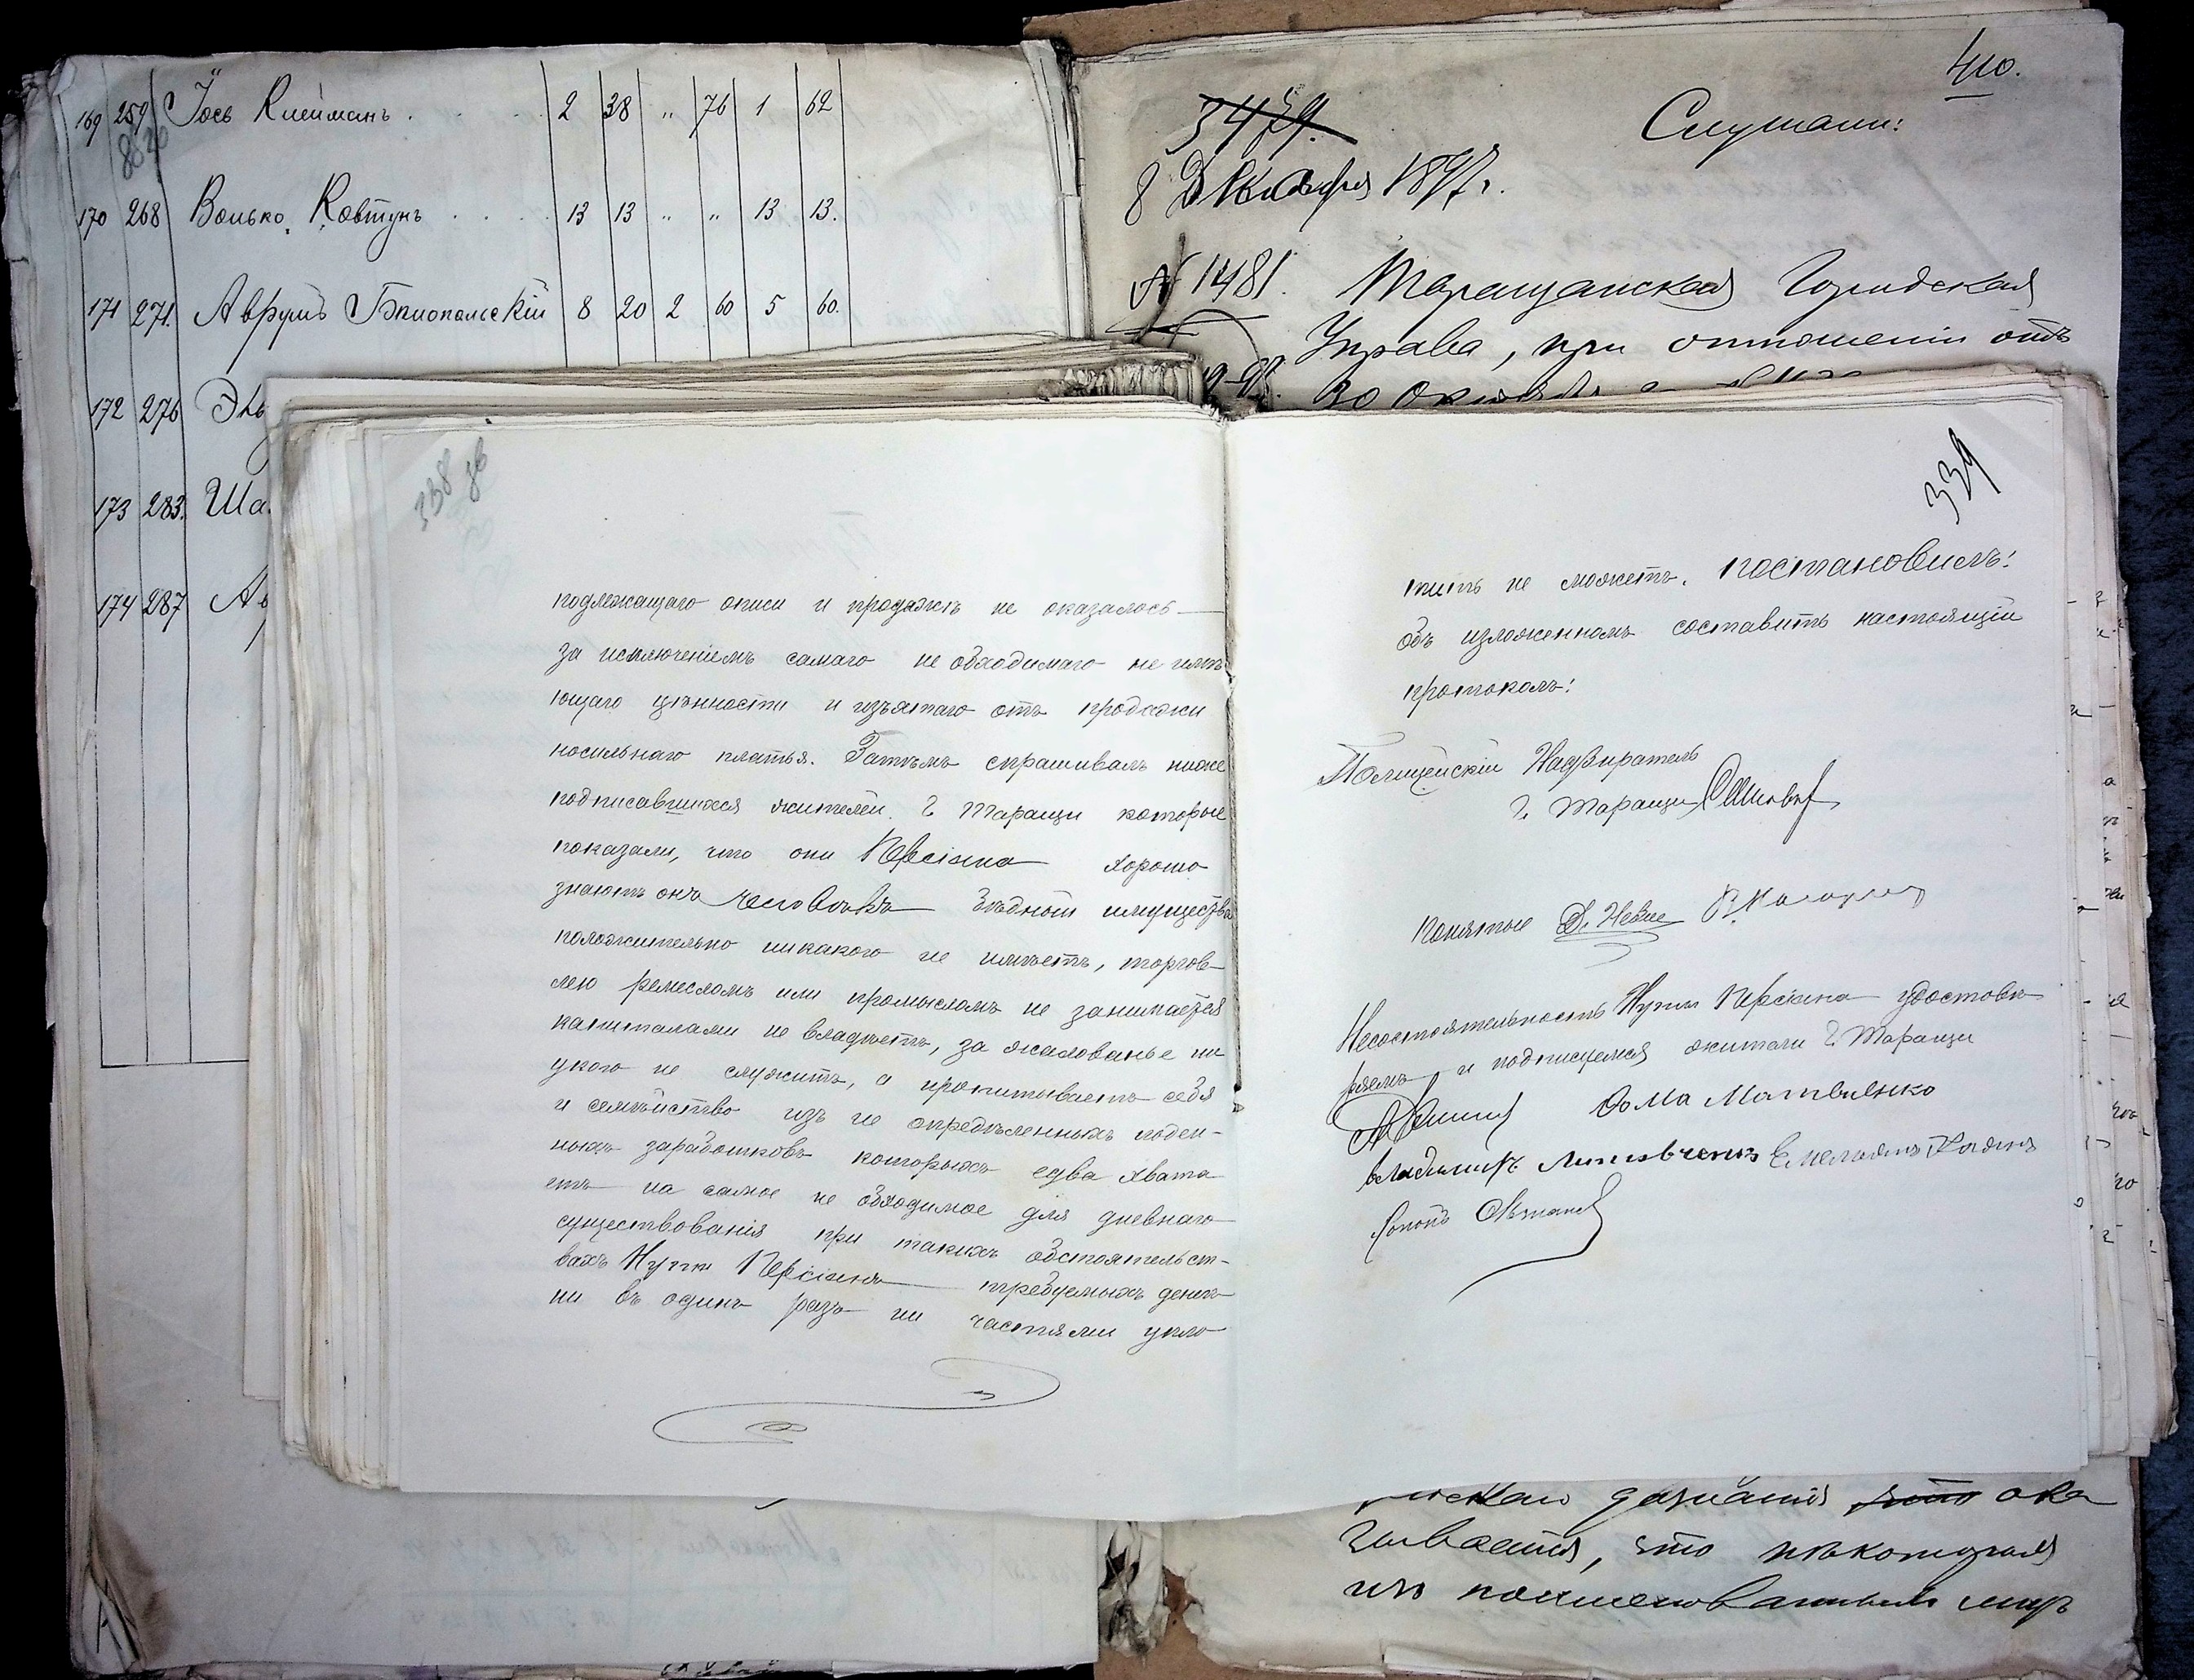 169 259 Іось Клейманъ 2 38 „ 76 1 62
170 268 Волько Ковтунъ 13 13 „ „ 13 13.
171 271. Аврумъ Бялопольскій 8 20 2 60 5 60.
172 276
173 283. Ша
174 287
410.
3479.
Слушали:
8 Декабря 1897 г.
№ 1481. Таращанская Городская
Управа, при отношеніи отъ
30 Октября
338
339
подлежащаго описи и продажѣ не оказалось
за исключеніемъ самаго не обходимаго не имѣ
ющаго цѣнности и изъятаго отъ продажи
носильнаго платья. Затѣмъ спрашивалъ ниже
подписавшихся жителей г. Таращи которые
показали, что они Персіяна хорошо
знаютъ онъ человѣкъ бѣдный имущества
положительно никакого не имѣетъ, торгов-
лею ремесломъ или промысломъ не занимается
капиталами не владѣетъ, за жалованье ни
укого не служитъ, а пропитываетъ себя
и семѣйство изъ не опредѣленныхъ поден-
ныхъ заработковъ которыхъ едва хвата
етъ на самое не обходимое для дневнаго
существованія при такихъ обстоятельст-
вахъ Нутa Персіянъ требуемыхъ денегъ
ни въ одинъ разъ ни частями упло
тить не можетъ. постановилъ:
объ изложенномъ составить настоящій
протоколъ:
Полицейскій Надзиратель
г. Таращи
Понятые
Несостоятельность Нуты Персіяна удостовѣ
ряемъ и подписуемся жители г. Таращи
Фома Матвиенко
Владимиръ Литовченко Емельянъ
дознанія что ока
зывается, что нѣкоторыя
изъ поименованныхъ лицъ